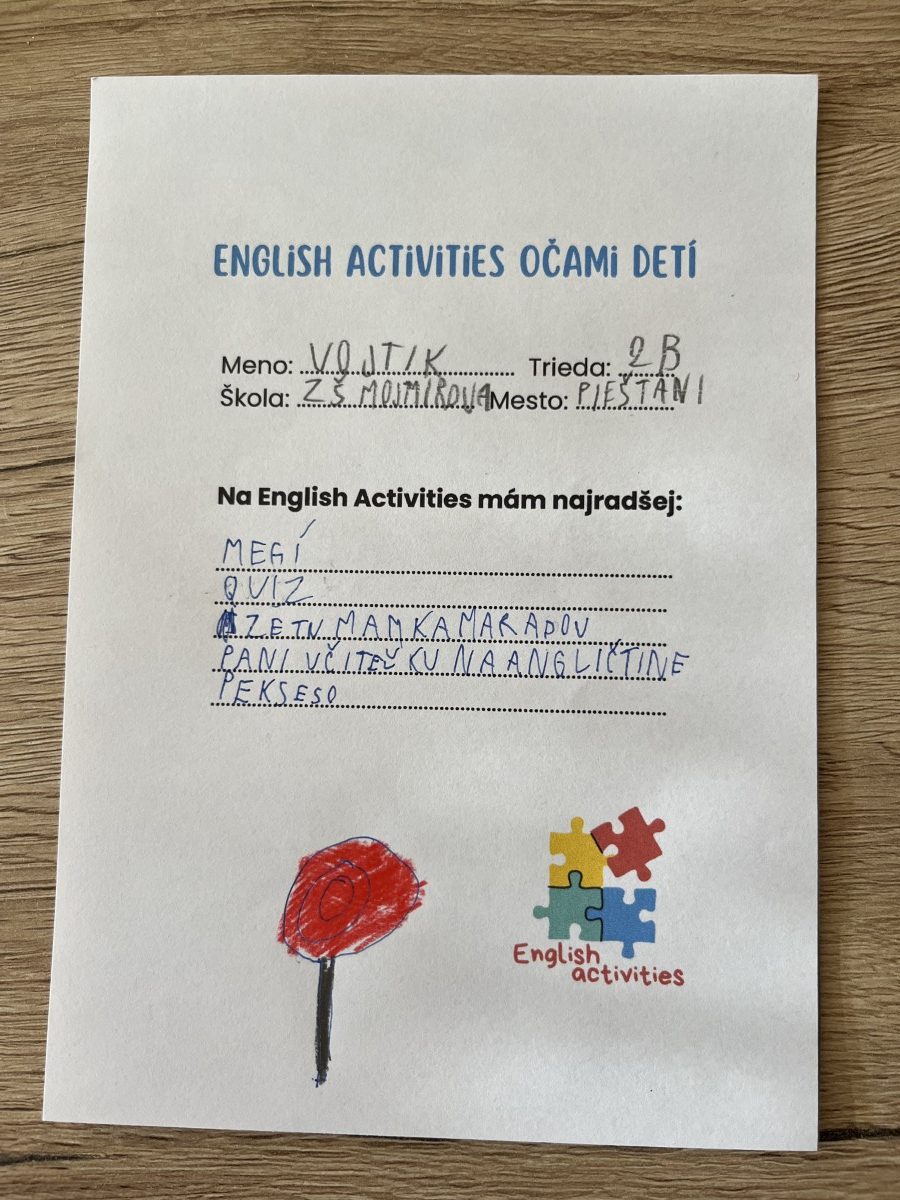 ENGLISH ACTIVITIES OČAMI DETÍ
Meno: VOJTIK Trieda: 2B
Škola: ZŠ MOJMÍROVA Mesto: PIEŠTANI
Na English Activities mám najradšej:
MEGÍ
QUIZ
ZETU MAMKAMARADOU
PANI UČITEĽKU NA ANGLIČTINE
PEKSESO
English
activities